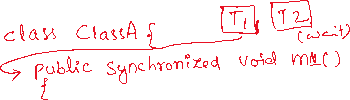 class ClassA { T1, T2
(wait)
public synchronized void m1()
{